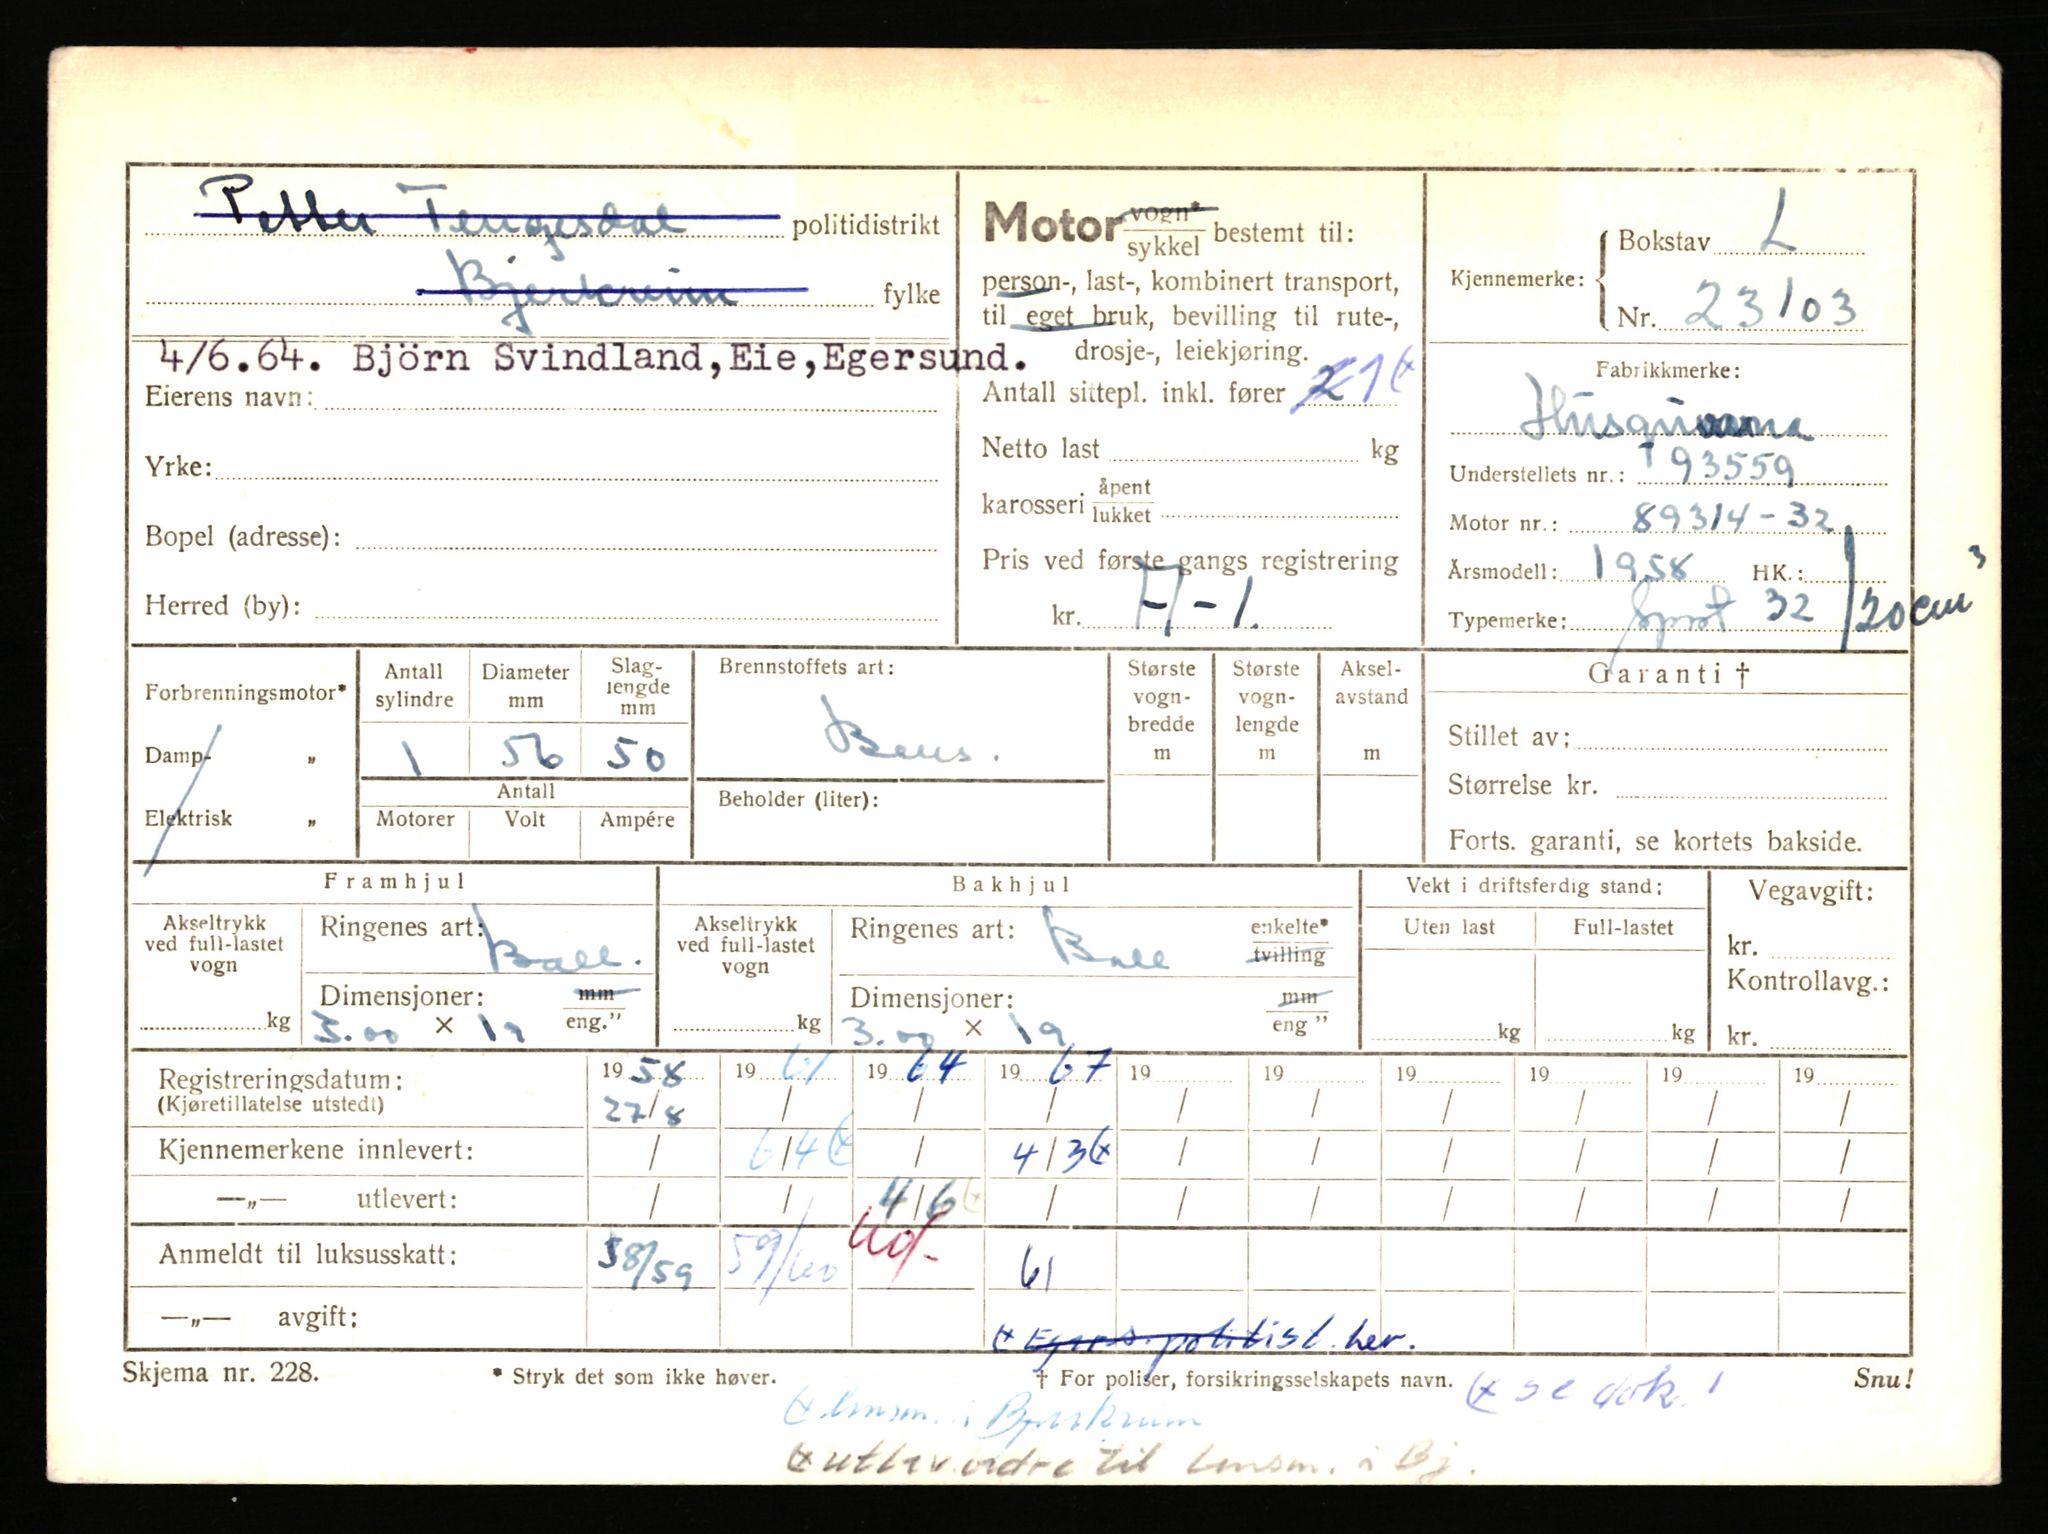 Petter Tengesdal politidistrikt
Bjerkreim fylke
4/6.64. Björn Svindland, Eie, Egersund.
Eierens navn:
Yrke:
Bopel (adresse):
Herred (by):
Motor vogn* / sykkel bestemt til:
person-, last-, kombinert transport,
til eget bruk, bevilling til rute-,
drosje-, leiekjøring.
Antall sittepl. inkl. fører 2 1
Netto last kg
karosseri åpent / lukket
Pris ved første gangs registrering
kr. A-1.
Kjennemerke: Bokstav L
Nr. 23103
Fabrikkmerke:
Husquvarna
Understellets nr.: T 93559
Motor nr.: 89314-32
Årsmodell: 1958 HK.:
Typemerke: Sport 32 120 cm³
Forbrenningsmotor*
Damp- „
Elektrisk „
Antall sylindre 1
Diameter mm 56
Slag-lengde mm 50
Antall
Motorer Volt Ampére
Brennstoffets art:
Bens.
Beholder (liter):
Største vogn-bredde m
Største vogn-lengde m
Aksel-avstand m
Garanti †
Stillet av:
Størrelse kr.
Forts. garanti, se kortets bakside.
Framhjul
Akseltrykk ved full-lastet vogn kg
Ringenes art: Ball.
Dimensjoner: mm / eng."
3.00 × 19
Bakhjul
Akseltrykk ved full-lastet vogn kg
Ringenes art: Ball enkelte* / tvilling
Dimensjoner: mm / eng "
3.00 × 19
Vekt i driftsferdig stand:
Uten last Full-lastet
kg kg
Vegavgift:
kr.
Kontrollavg.:
kr.
Registreringsdatum: 1958 1961 1964 1967 19 19 19 19 19 19
(Kjøretillatelse utstedt) 27/8 / / / / / / / / /
Kjennemerkene innlevert: / 6/4 / 4/3 / / / / / /
—„— utlevert: / / 4/6 / / / / / / /
Anmeldt til luksusskatt: 58/59 59/60 40/- 61
—„— avgift:
Egers. politist. her.
Skjema nr. 228. * Stryk det som ikke høver. † For poliser, forsikringsselskapets navn. se dok. 1 Snu!
lensm. i Bjerkreim
utlev. ordre til lensm. i Bj.